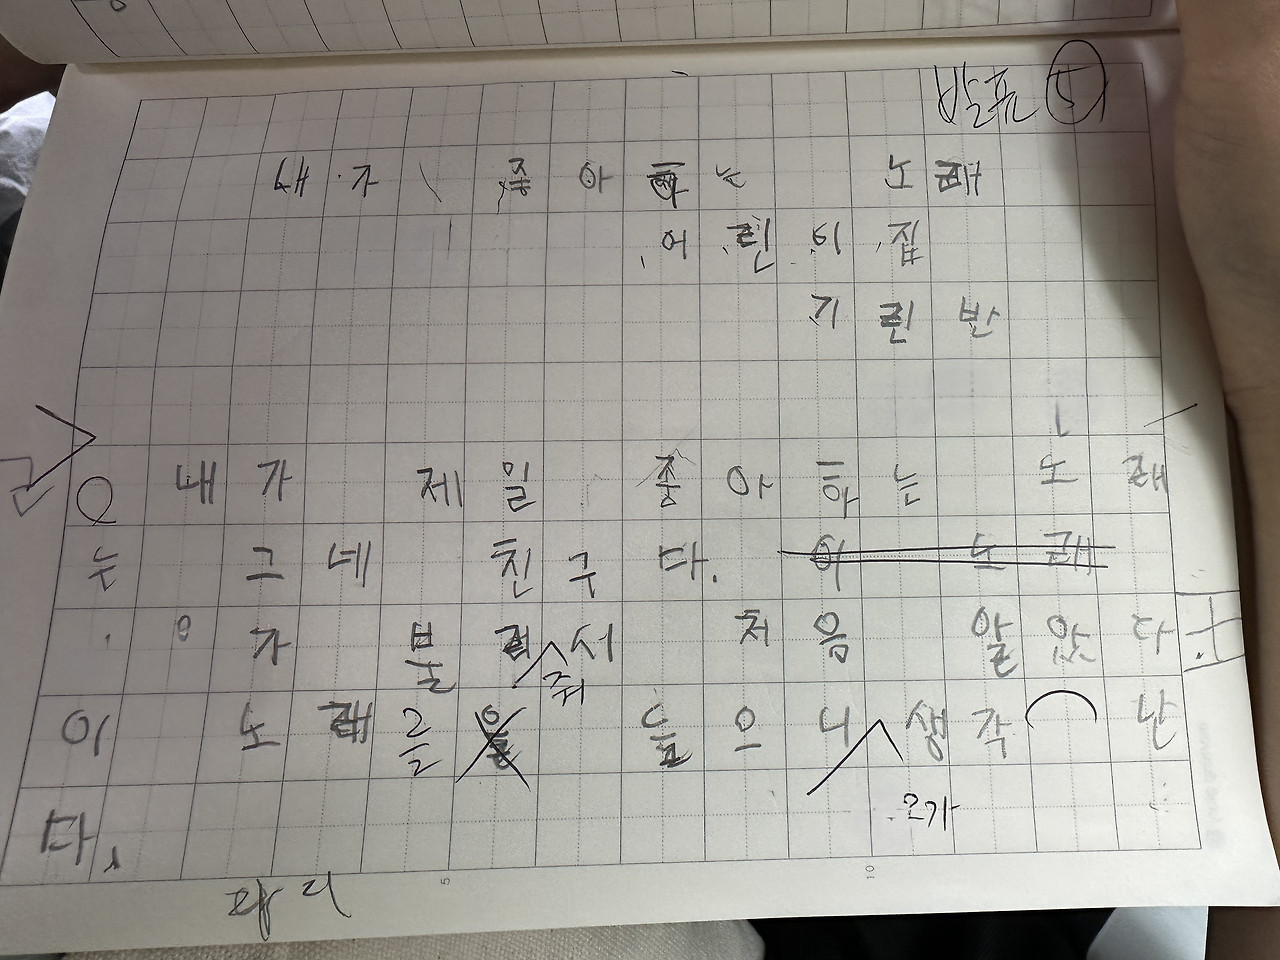 발표 5
내가 좋아하는 노래
어린이집
기린반
내가 제일 좋아하는 노래
는 그네 친구다. 이 노래
가 불러서 처음 알았다
줘
이 노래를 을 들으니 생각 난
오가
다.
5
10